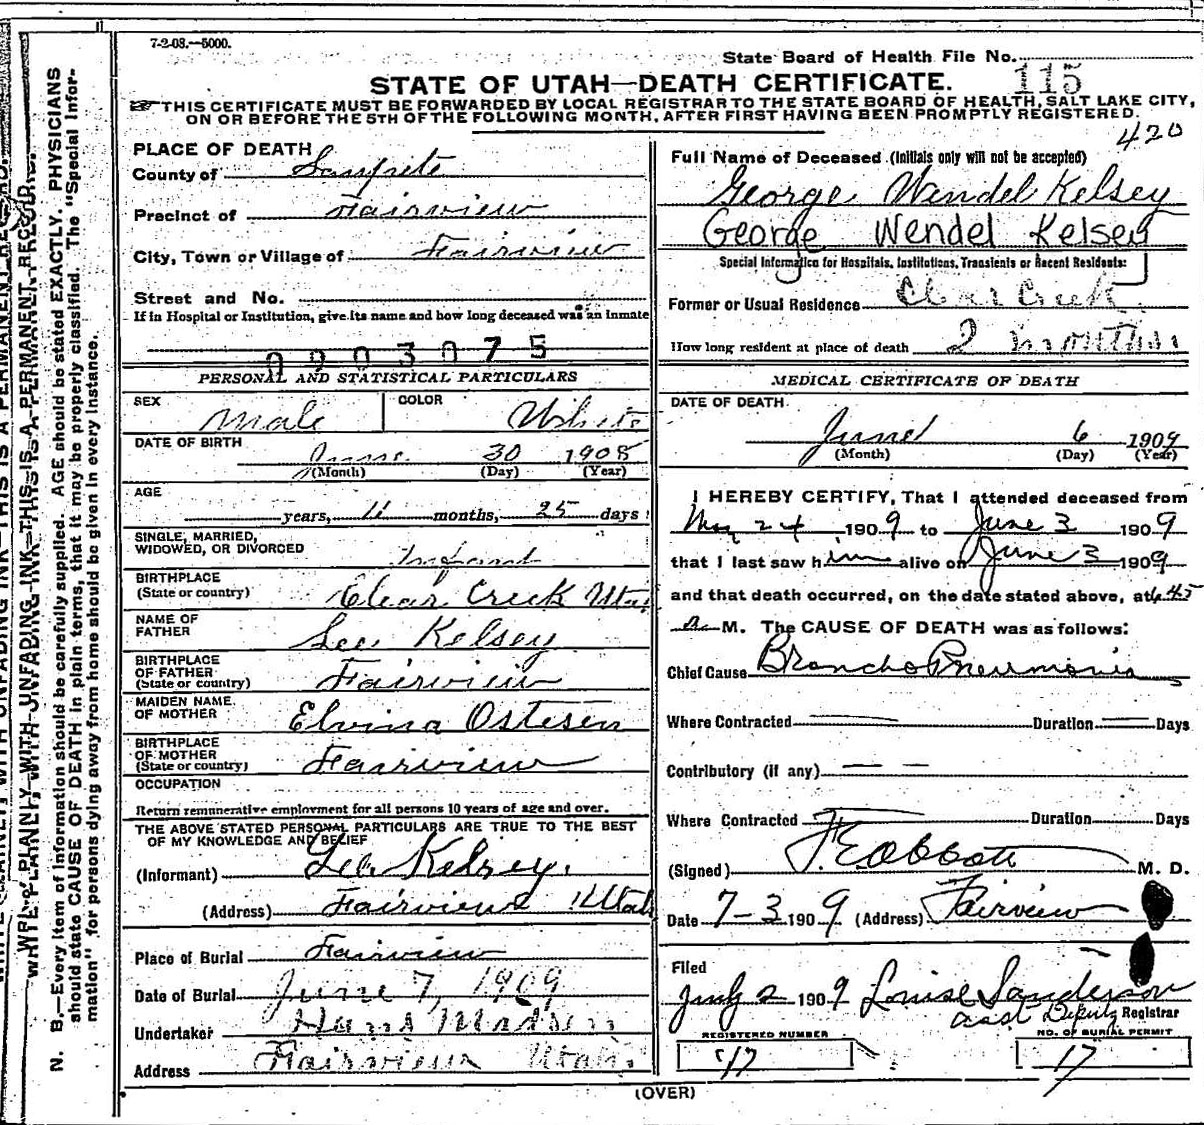 7-2-08.—5000.
State Board of Health File No. 115
STATE OF UTAH—DEATH CERTIFICATE.
THIS CERTIFICATE MUST BE FORWARDED BY LOCAL REGISTRAR TO THE STATE BOARD OF HEALTH, SALT LAKE CITY,
ON OR BEFORE THE 5TH OF THE FOLLOWING MONTH, AFTER FIRST HAVING BEEN PROMPTLY REGISTERED.
420
PLACE OF DEATH
County of Sanpete
Precinct of Fairview
City, Town or Village of Fairview
Street and No.
If in Hospital or Institution, give its name and how long deceased was an inmate
0903075
PERSONAL AND STATISTICAL PARTICULARS
SEX Male COLOR White
DATE OF BIRTH
June 30 1908
(Month) (Day) (Year)
AGE
years, 11 months, 25 days
SINGLE, MARRIED,
WIDOWED, OR DIVORCED Infant
BIRTHPLACE
(State or country) Clear Creek Utah
NAME OF
FATHER Leo Kelsey
BIRTHPLACE
OF FATHER
(State or country) Fairview
MAIDEN NAME
OF MOTHER Elvina Ostesen
BIRTHPLACE
OF MOTHER
(State or country) Fairview
OCCUPATION
Return remunerative employment for all persons 10 years of age and over.
THE ABOVE STATED PERSONAL PARTICULARS ARE TRUE TO THE BEST
OF MY KNOWLEDGE AND BELIEF
(Informant) Leo Kelsey.
(Address) Fairview Utah
Place of Burial Fairview
Date of Burial June 7, 1909
Undertaker Hans
Address Fairview Utah.
Full Name of Deceased (Initials only will not be accepted)
George Wendel Kelsey
George Wendel Kelsey
Special Information for Hospitals, Institutions, Transients or Recent Residents:
Former or Usual Residence Clear Creek
How long resident at place of death 2 months
MEDICAL CERTIFICATE OF DEATH
DATE OF DEATH
June 6 1909
(Month) (Day) (Year)
I HEREBY CERTIFY, That I attended deceased from
May 24 1909 to June 3 1909
that I last saw him alive on June 3 1909
and that death occurred, on the date stated above, at 6.45
a M. The CAUSE OF DEATH was as follows:
Chief Cause Broncho Pneumonia
Where Contracted Duration Days
Contributory (if any)
Where Contracted Duration Days
(Signed) M. D.
Date 7-3 1909 (Address) Fairview
Filed
July 2 1909 Louise Sanderson
asst Deputy Registrar
REGISTERED NUMBER NO. OF BURIAL PERMIT
17 17
(OVER)
WRITE PLAINLY WITH UNFADING INK—THIS IS A PERMANENT RECORD.
N. B.—Every item of information should be carefully supplied. AGE should be stated EXACTLY. PHYSICIANS
should state CAUSE OF DEATH in plain terms, that it may be properly classified. The "Special Infor-
mation" for persons dying away from home should be given in every instance.